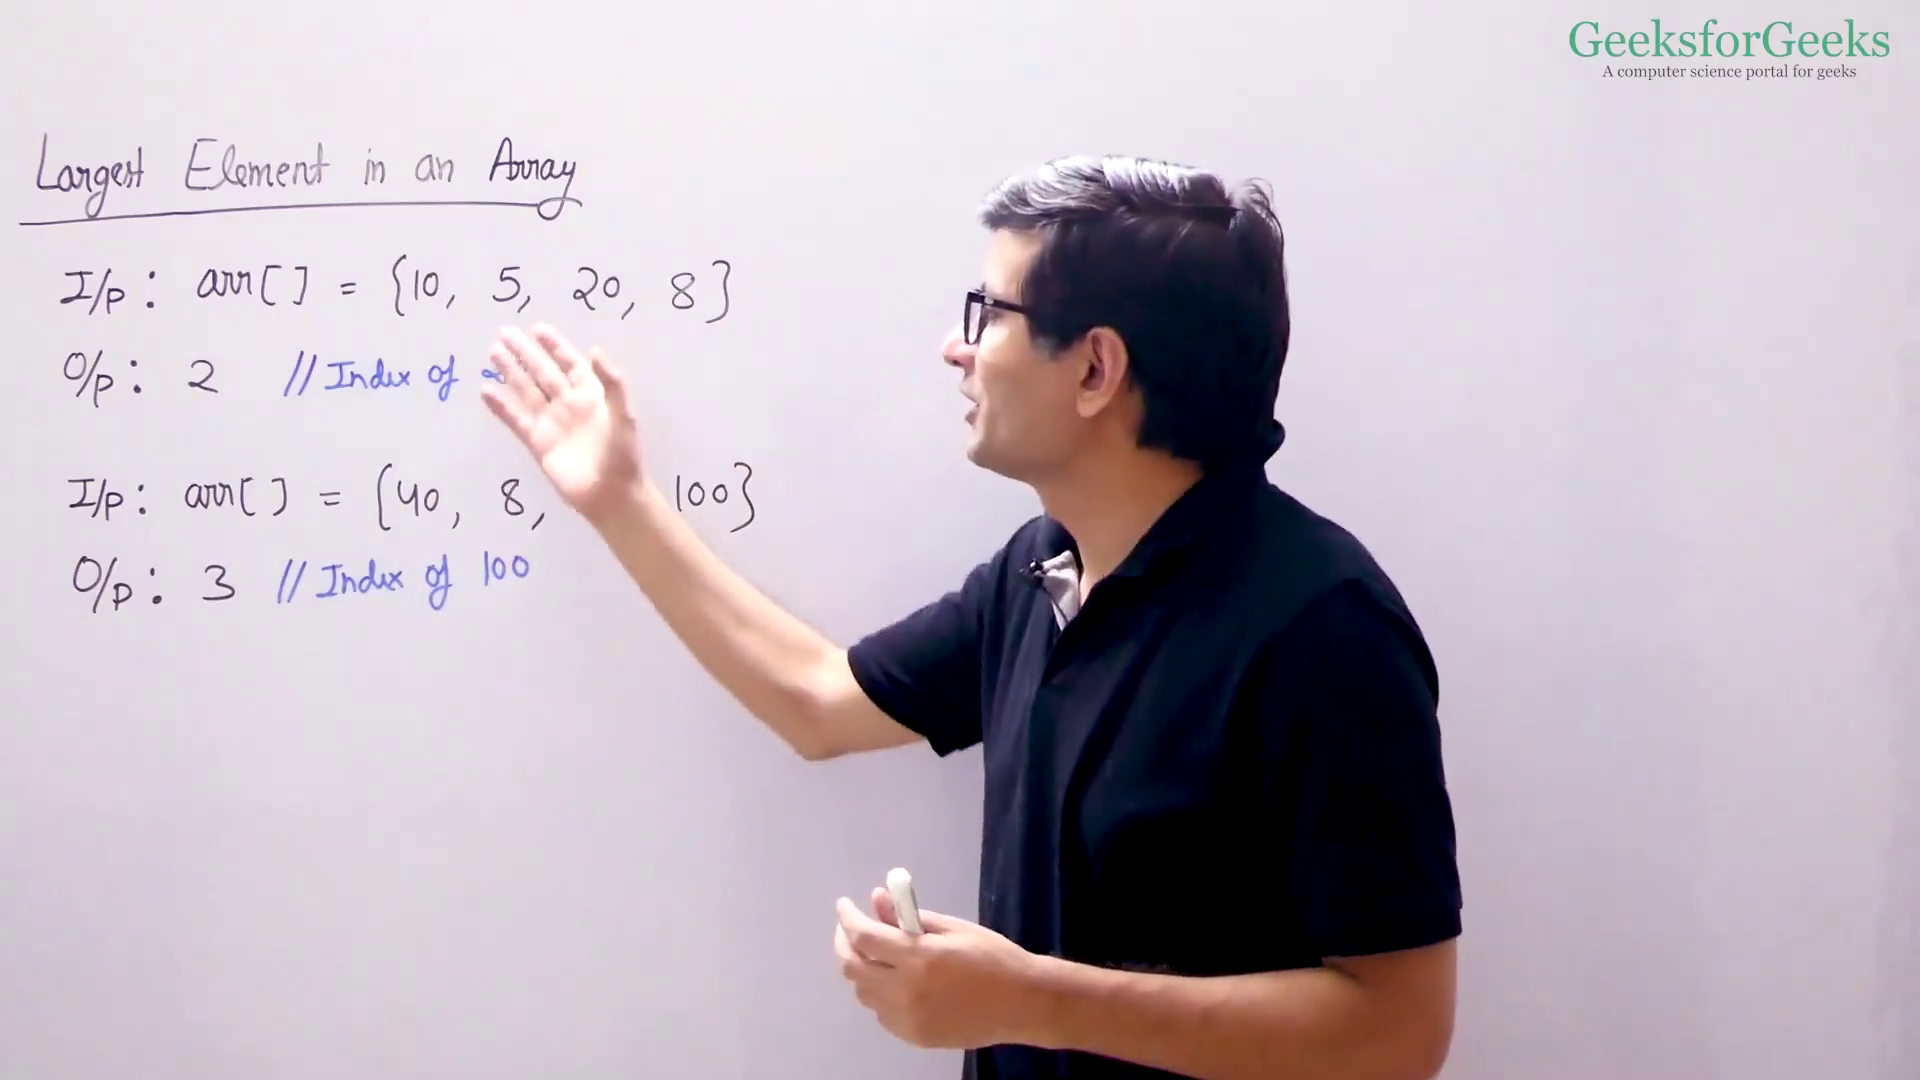 GeeksforGeeks
A computer science portal for geeks
Largest Element in an Array
I/p: arr[] = {10, 5, 20, 8}
O/p: 2 // Index of
I/p: arr[] = {40, 8, 100}
O/p: 3 // Index of 100